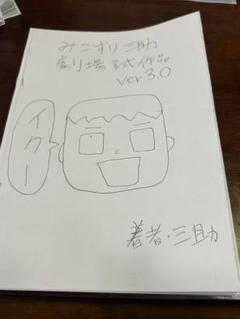 みこすり三助
売り場 試作品
ver 3.0
イクー
著者・三助